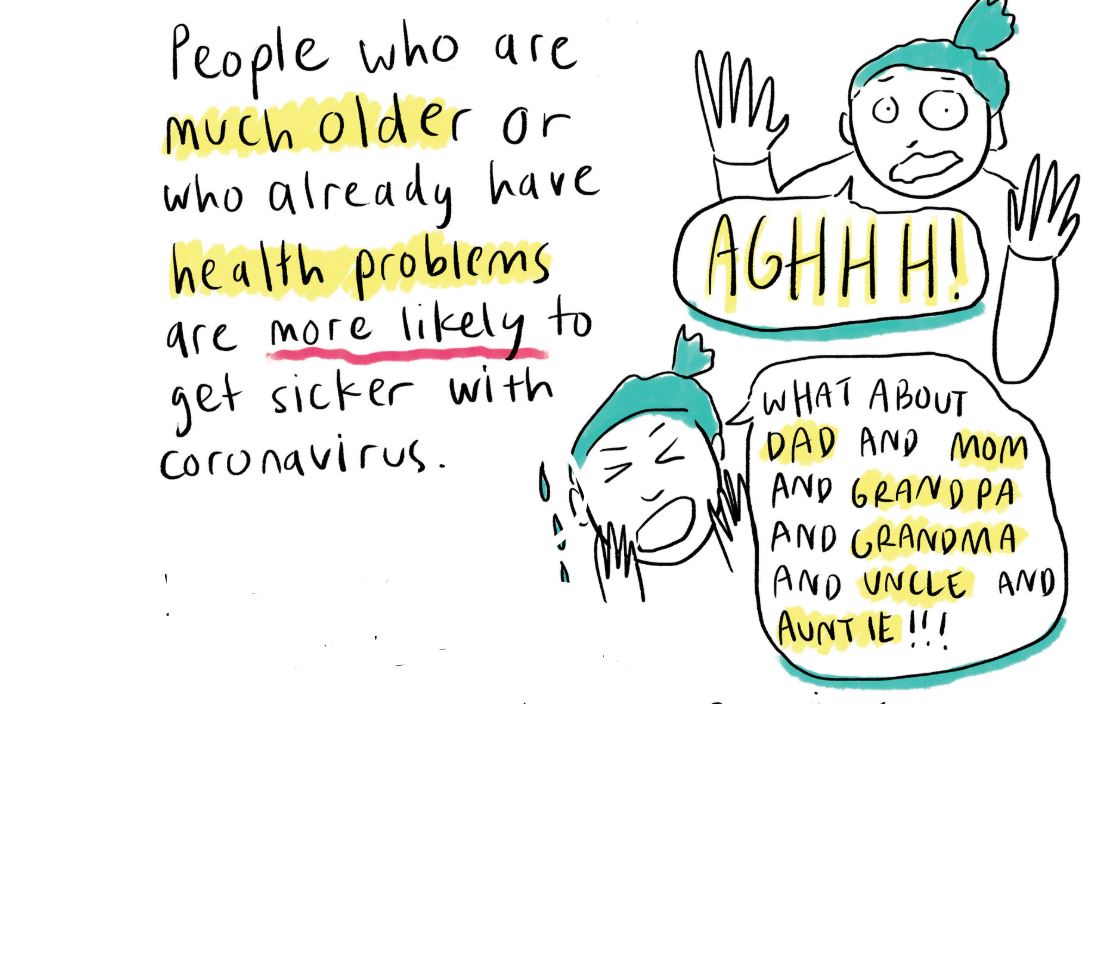 People who are
much older or
who already have
health problems
are more likely to
get sicker with
coronavirus.
AGHHH!
WHAT ABOUT
DAD AND MOM
AND GRANDPA
AND GRANDMA
AND UNCLE AND
AUNTIE!!!